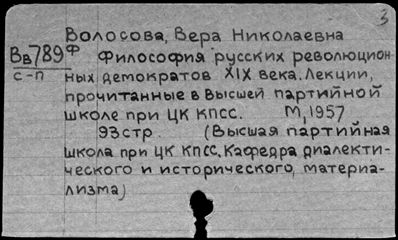 3
Волосова, Вера Николаевна
Вв789 Ф Философия русских революцион
с-п ных демократов XIX века. Лекции,
прочитанные в высшей партийной
школе при ЦК КПСС. М, 1957
93стр. (Высшая партийная
школа при ЦК КПСС. Кафедра диалекти-
ческого и исторического, материа-
лизма)